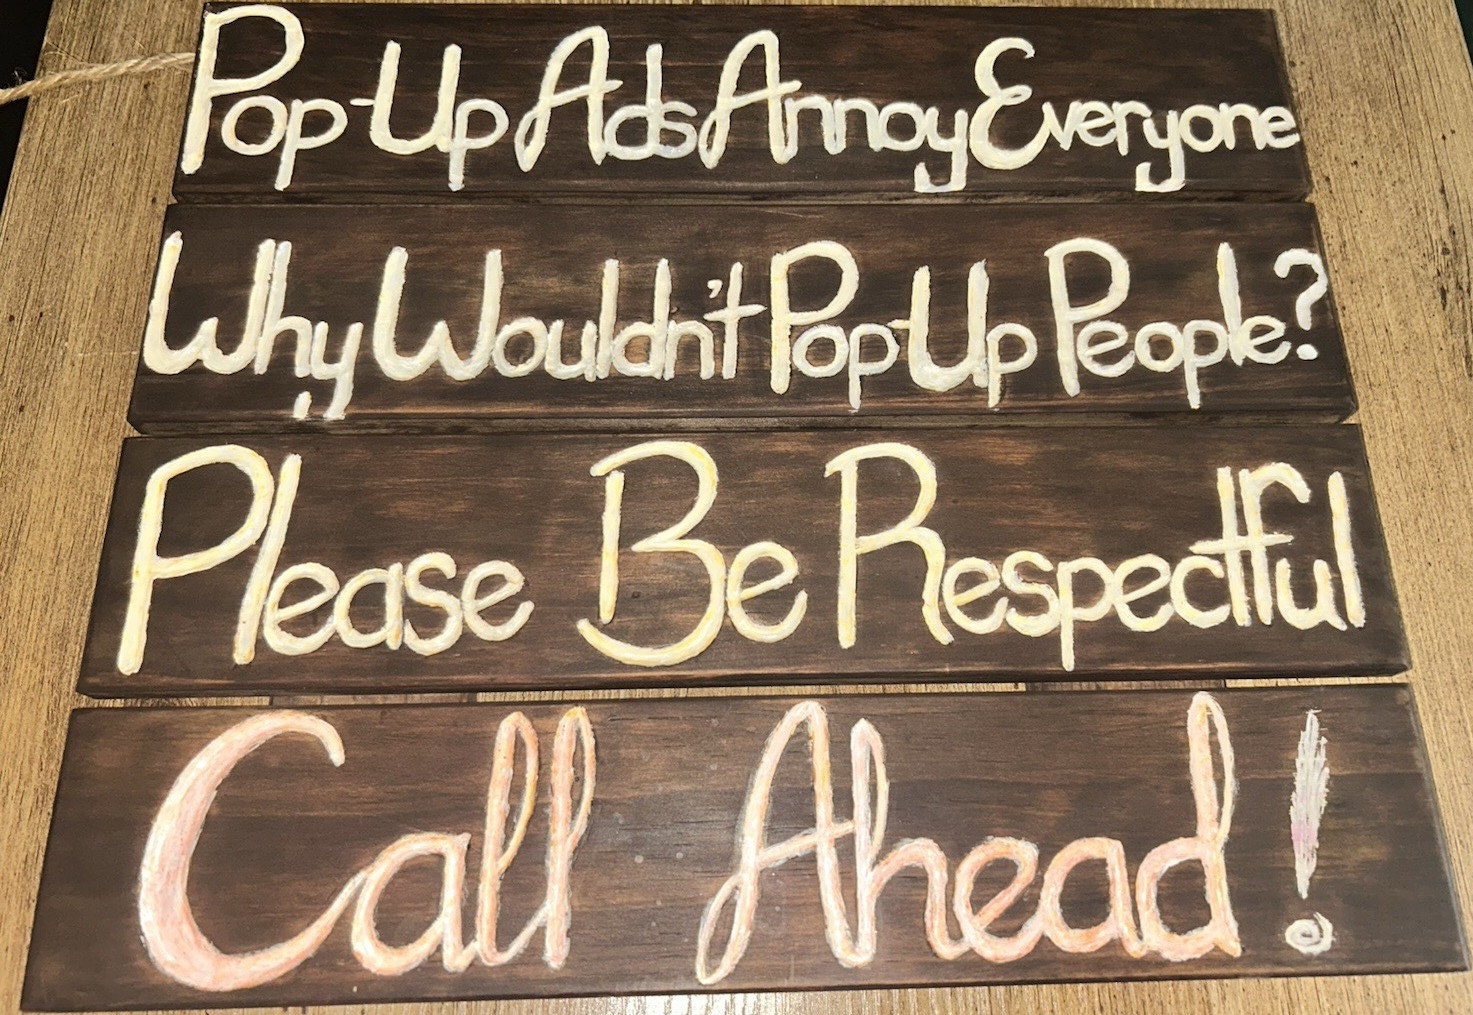 Pop-Up Ads Annoy Everyone
Why Wouldn't Pop-Up People?
Please Be Respectful
Call Ahead!